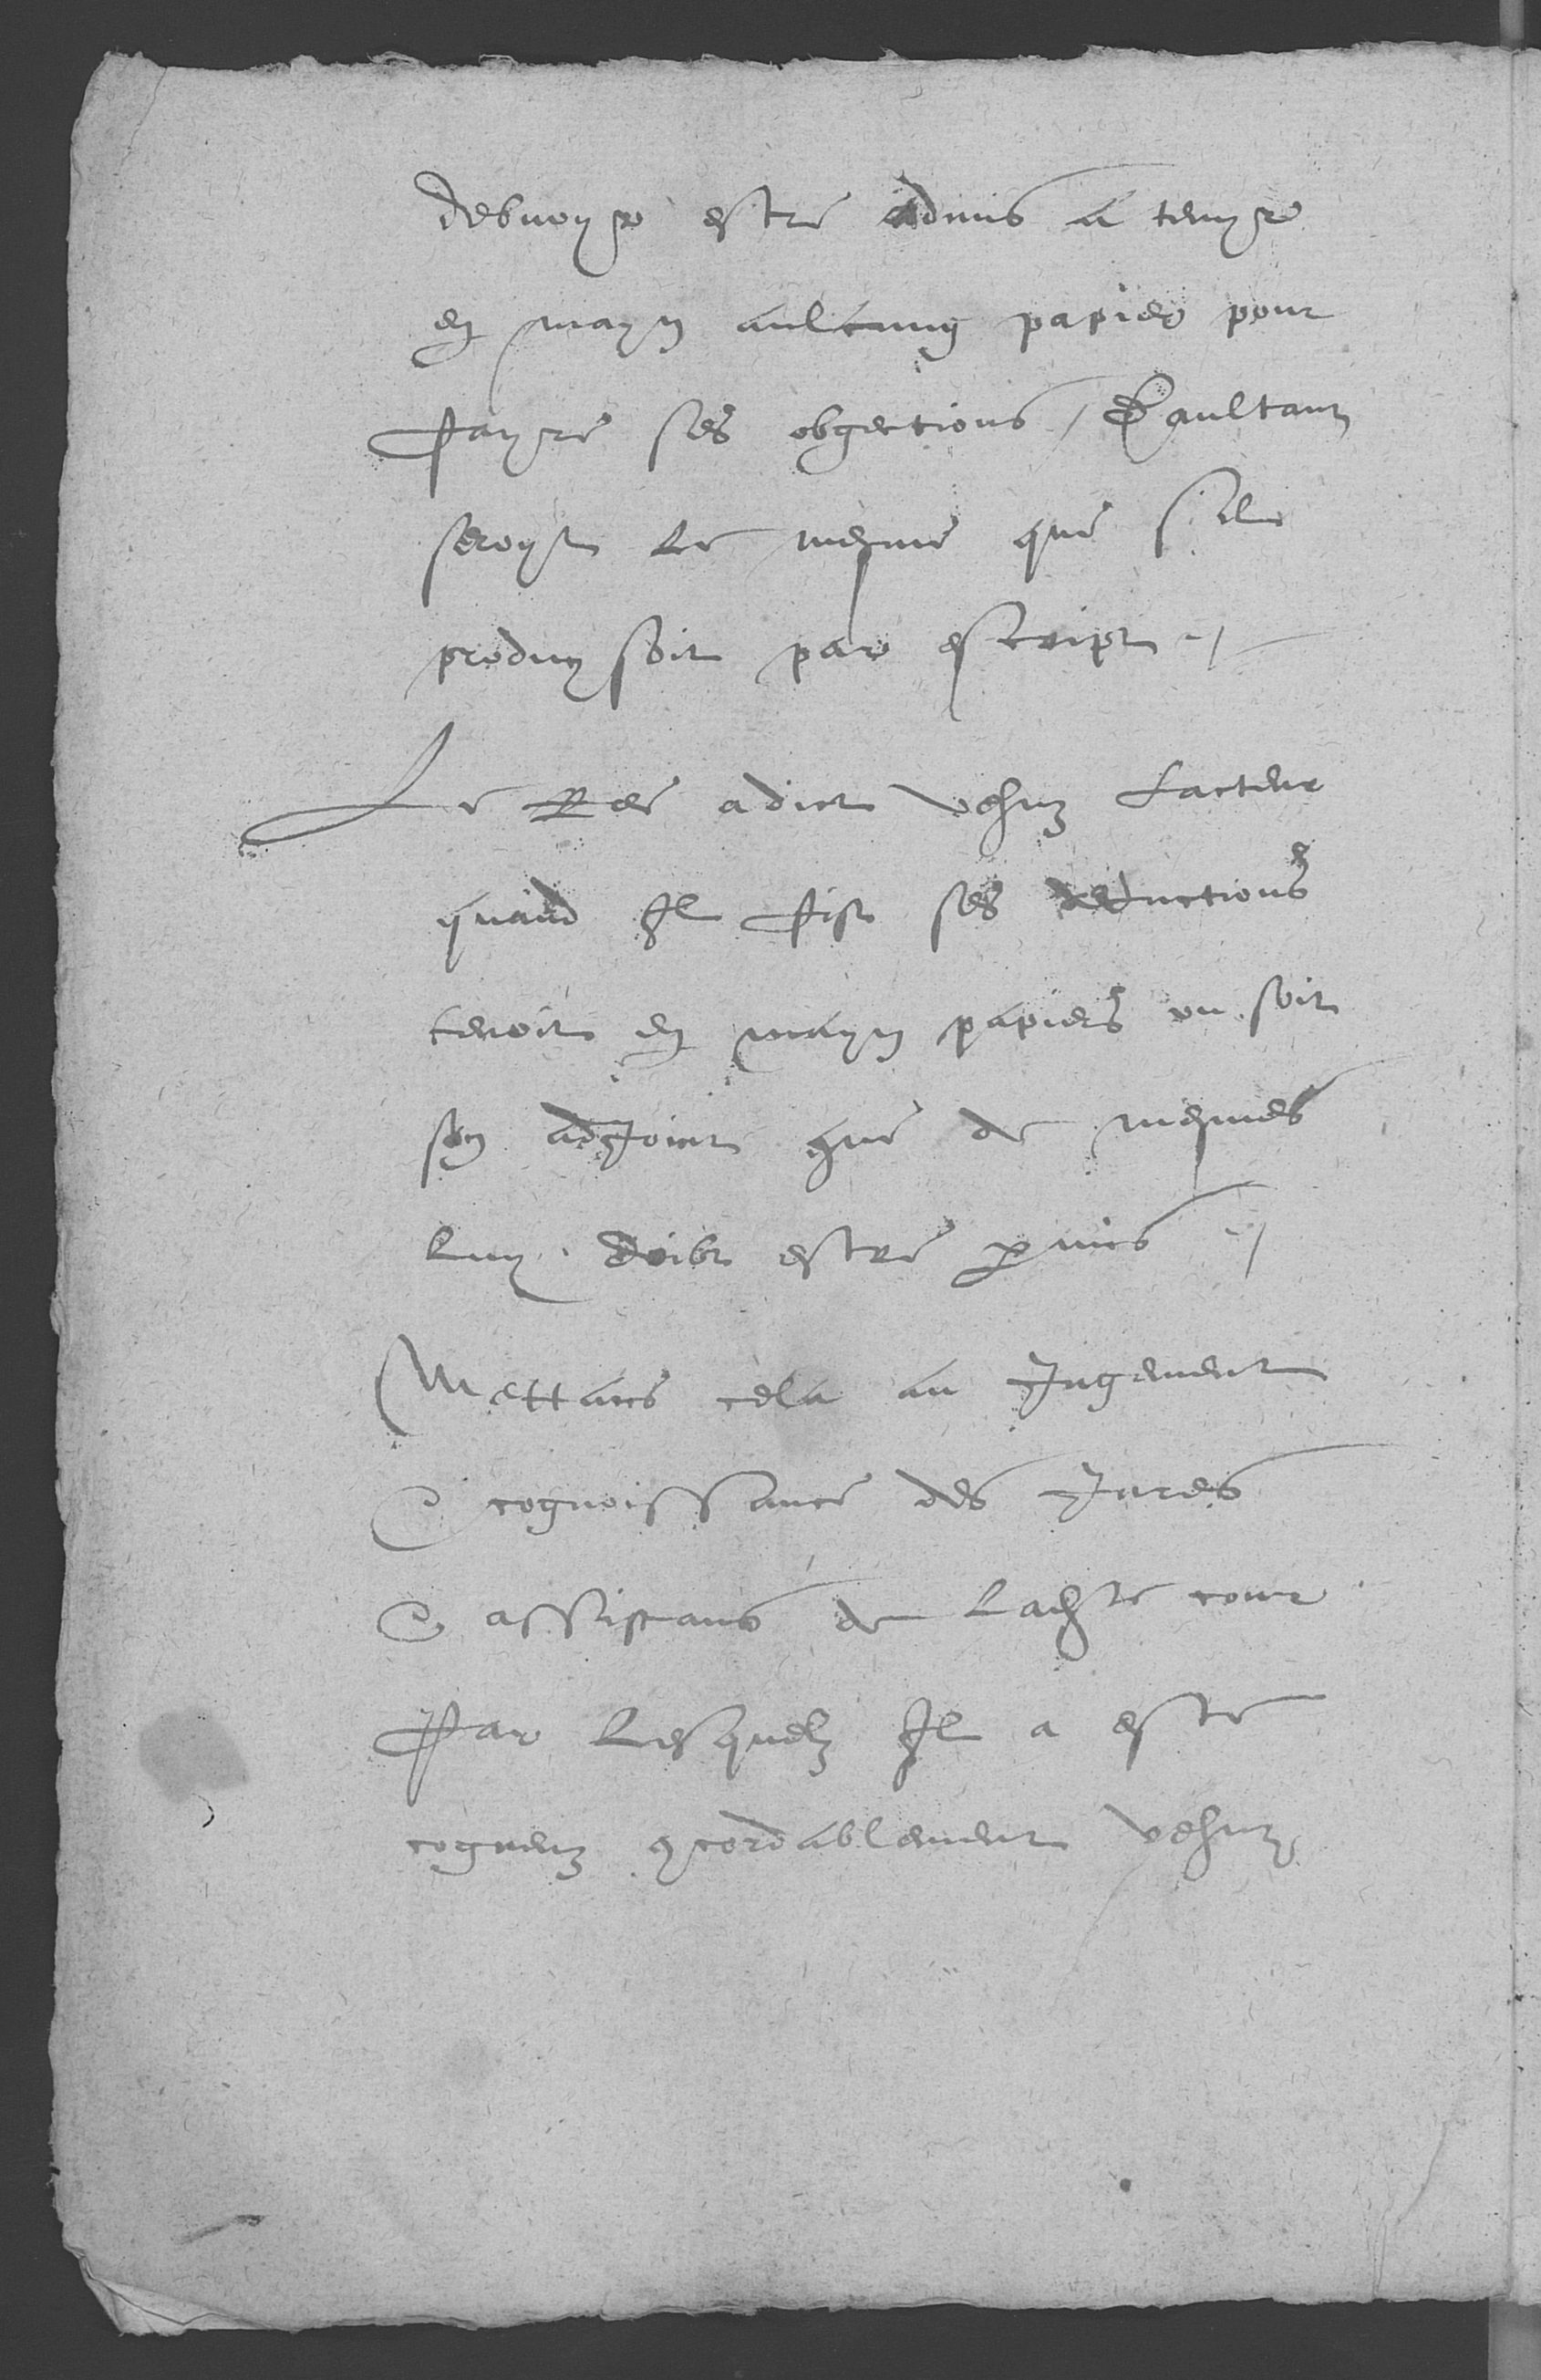 debvoyr estre admis a tenyr
en mayn aulcung papier pour
fayre ses obgections / Daultant
seroyt le mesme que sil
produysoit par escript /
Le Ree a dict vehuz Lacteur
quand Il fist ses deductions
tenoit en mayn papiers ou soit
son adjoinct que de mesmes
luy doibt estre permis /
Mettans cela au Jugement
& cognoissance des Jures
& assistans de Ladicte cour
Par lesquelz Il a este
cogneuz concordablement vehuz